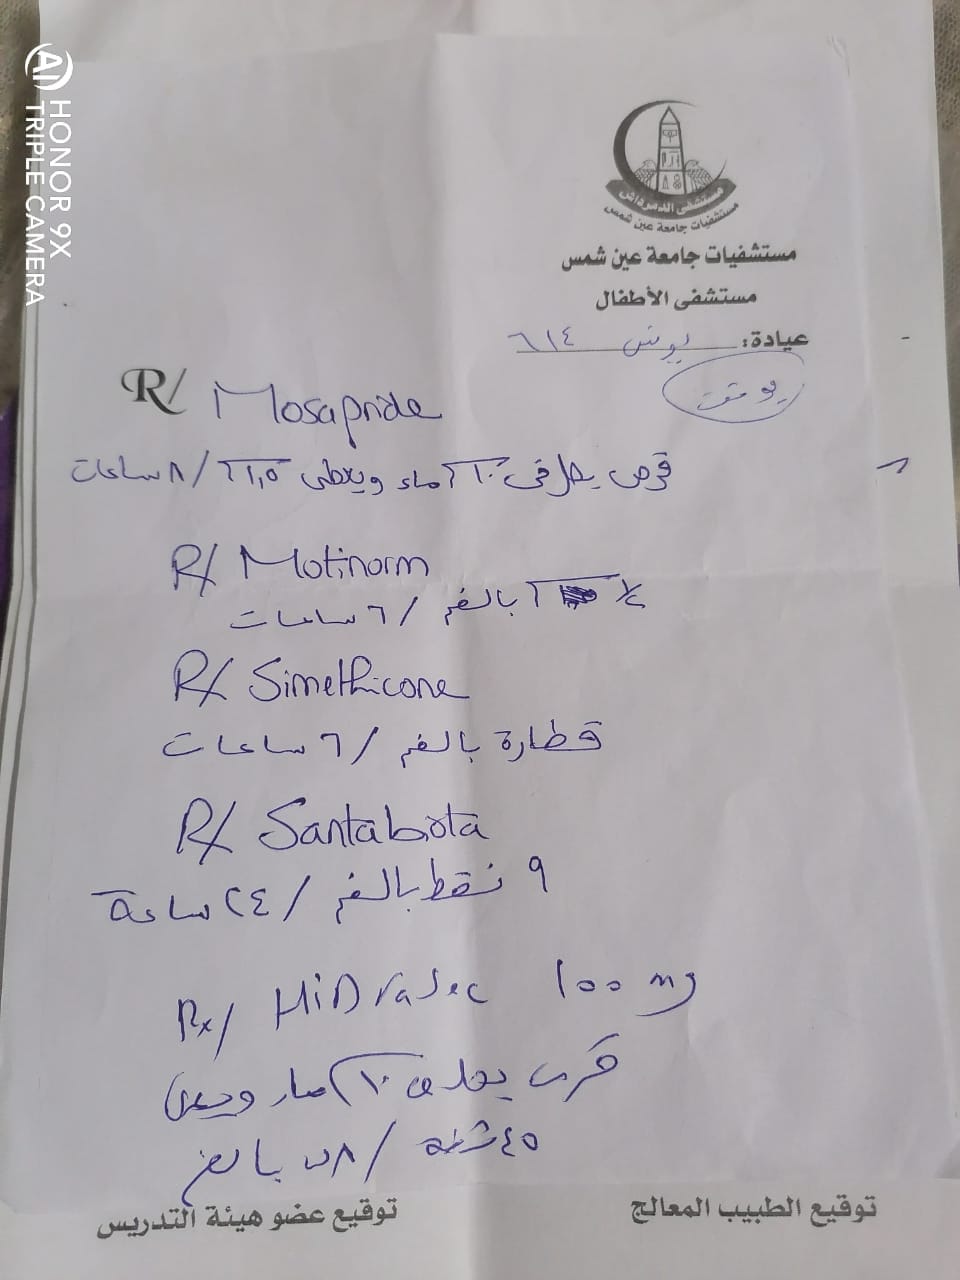 HONOR 9X
TRIPLE CAMERA
مستشفى الدمرداش
مستشفيات جامعة عين شمس
مستشفيات جامعة عين شمس
مستشفى الأطفال
عيادة: يونس ٦١٤
R/ Mosapride
قرص يحل فى ١٠ ماء ويعطى ١,٥ / ٨ ساعات
R/ Motinorm
بالفم / ٦ ساعات
R/ Simethicone
قطارة بالفم / ٦ ساعات
R/ Santabiota
٩ نقط بالفم / ٢٤ ساعة
Rx/ HiDrasec 100 mg
١٠
٤٥ شرطة / ٨ س بالفم
توقيع الطبيب المعالج
توقيع عضو هيئة التدريس